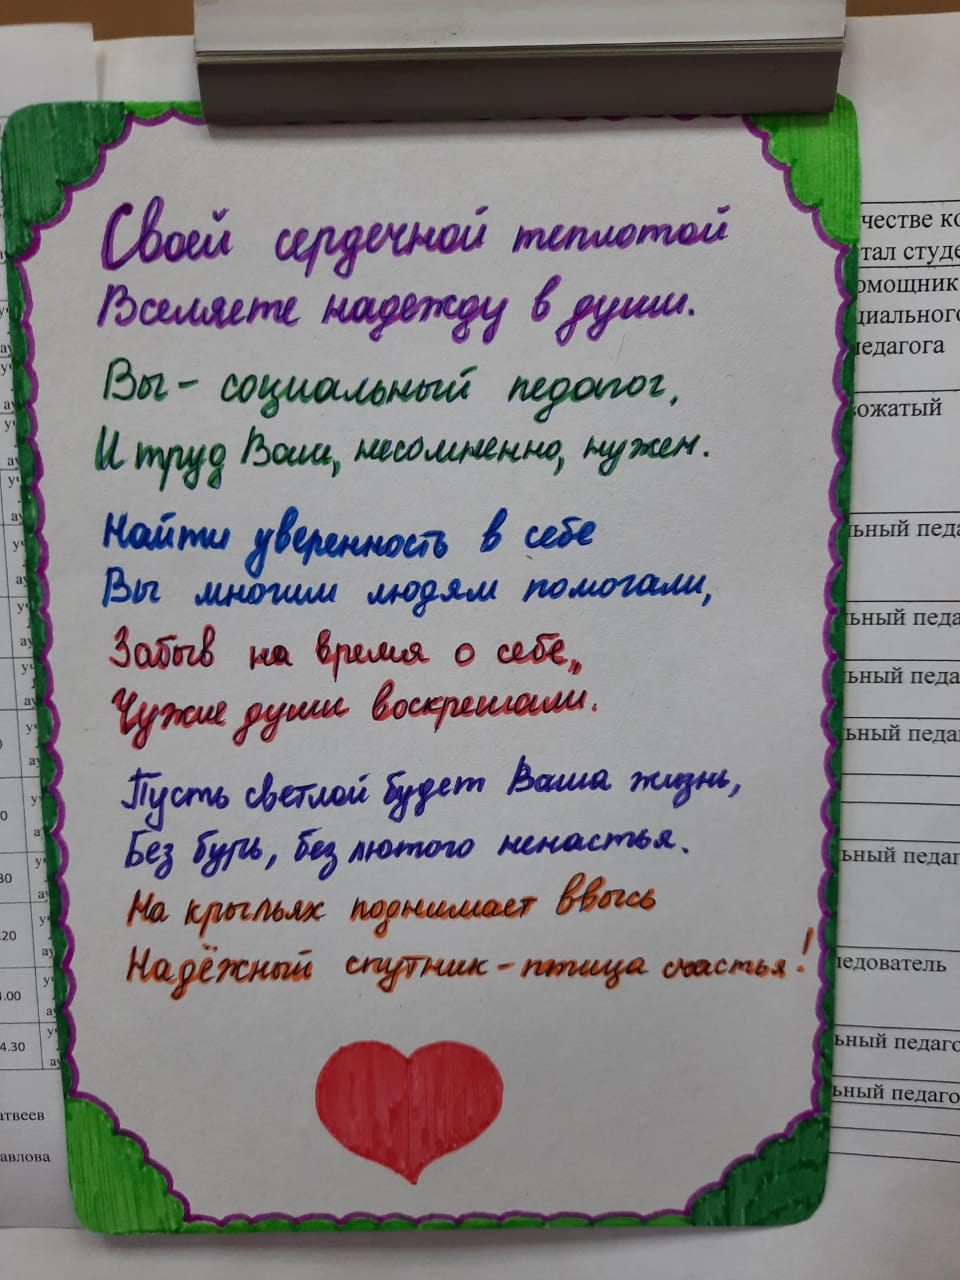 Своей сердечной теплотой
Вселяете надежду в души.
Вы - социальный педагог,
И труд Ваш, несомненно, нужен.
Найти уверенность в себе
Вы многим людям помогали,
Забыв на время о себе,
Чужие души воскрешали.
Пусть светлой будет Ваша жизнь,
Без бурь, без лютого ненастья.
На крыльях поднимает ввысь
Надёжный спутник - птица счастья!
честве ко
тал студе
омощник
циального
педагога
вожатый
ьный педа
ьный педа
ьный педа
ьный педаг
ьный педаг
ледователь
ьный педаго
ьный педаго
30
.20
4.00
4.30
атвеев
авлова